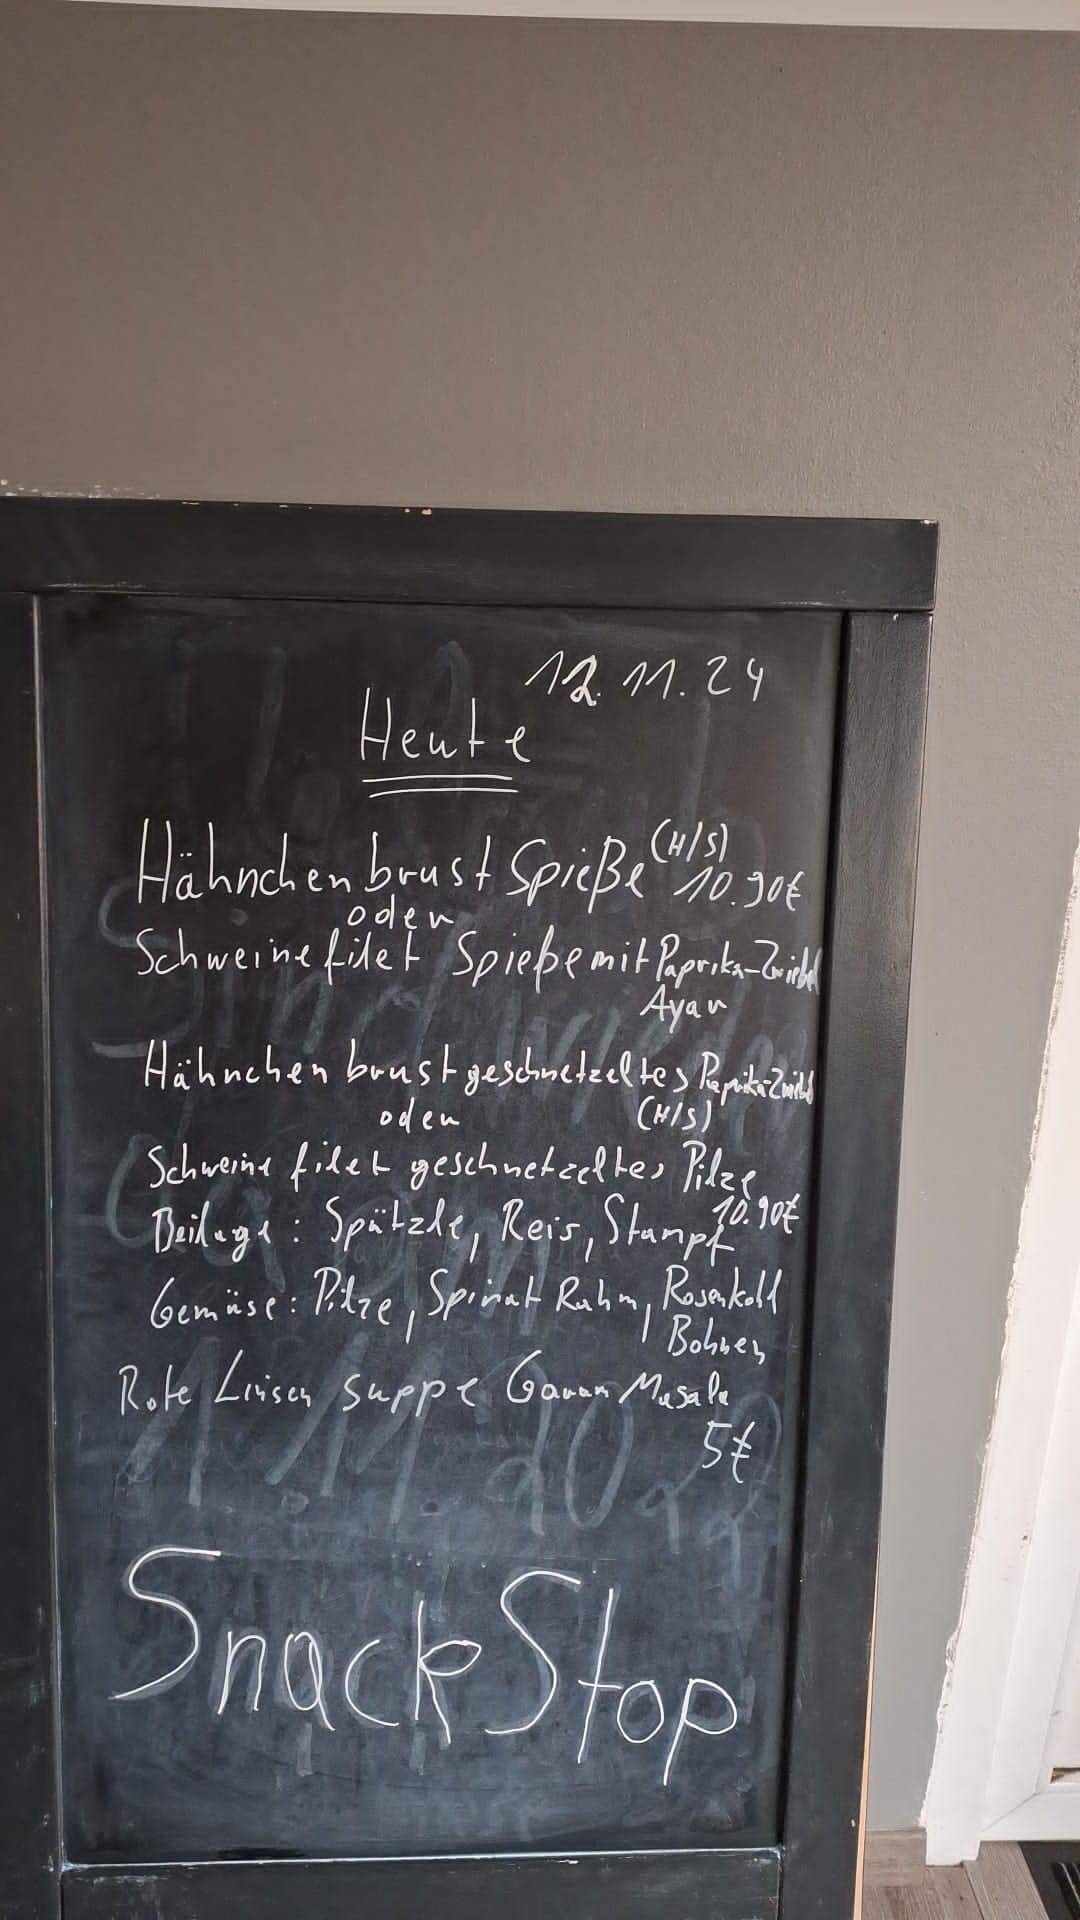 12.11.24
Heute
Hähnchenbrust Spieße (H/S) 10.90€
oder
Schweinefilet Spieße mit Paprika-Zwiebel
Ayar
Hähnchenbrustgeschnetzeltes Paprika-Zwiebel
oder (H/S)
Schweinefilet geschnetzeltes Pilze
10.90€
Beilage: Spätzle, Reis, Stampf
Gemüse: Pilze, Spinat Rahm, Rosenkohl
Bohnen
Rote Linsen suppe Garam Masala
5€
SnackStop